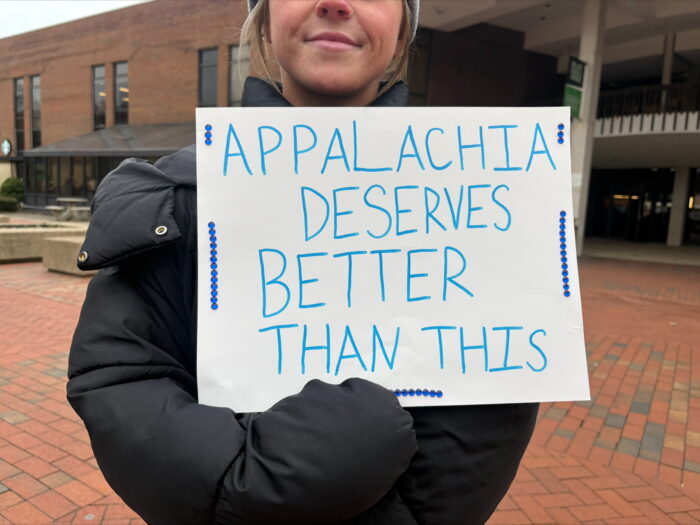 APPALACHIA
DESERVES
BETTER
THAN THIS